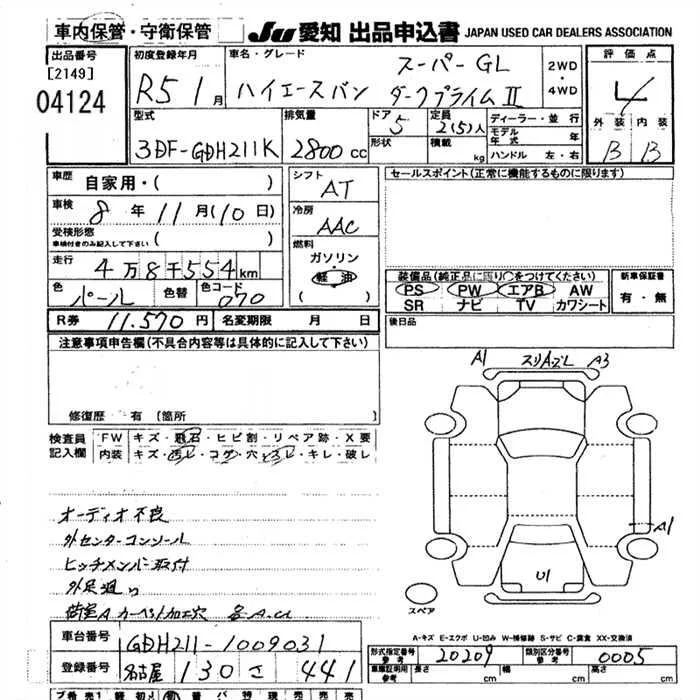 車内保管・守衛保管 JU 愛知 出品申込書 JAPAN USED CAR DEALERS ASSOCIATION
出品番号 [2149] 04124
初度登録年月 R5 1月
車名・グレード ハイエースバン スーパーGL ダークプライムⅡ
2WD・4WD
評価点 4
外装 内装
B B
型式 3DF-GDH211K
排気量 2800cc
ドア 5
形状
定員 2(5)人
積載 kg
ディーラー・並行
モデル年式 年
ハンドル 左・右
車歴 自家用・( )
車検 8年11月(10日)
受検形態 車検付きのみ記入して下さい ( )
走行 4万8千554km
色 パール 色替 色コード 070
シフト AT
冷房 AAC
燃料 ガソリン 軽油
セールスポイント(正常に機能するものに限ります)
装備品(純正品に限り○をつけてください)
PS PW エアB AW
SR ナビ TV カワシート
新車保証書 有・無
R券 11,570円 名変期限 月 日
後日品
注意事項申告欄(不具合内容等は具体的に記入して下さい)
修復歴 有 (箇所
検査員記入欄
FW キズ・飛石・ヒビ割・リペア跡・X要
内装 キズ・汚レ・コゲ・穴・スレ・キレ・破レ
A1 スリAズレ A3
A1
U1
スペア
オーディオ不良
外センターコンソール
ヒッチメンバー取付
外足廻り
荷室A カーペット加工穴
A-キズ E-エクボ U-凹み W-補修跡 S-サビ C-腐食 XX-交換済
車台番号 GDH211-1009031
登録番号 名古屋 130 さ 441
形式指定番号 参考 20209 類別区分番号 参考 0005
車庫証明用 参考 長さ cm 幅 cm 高さ cm